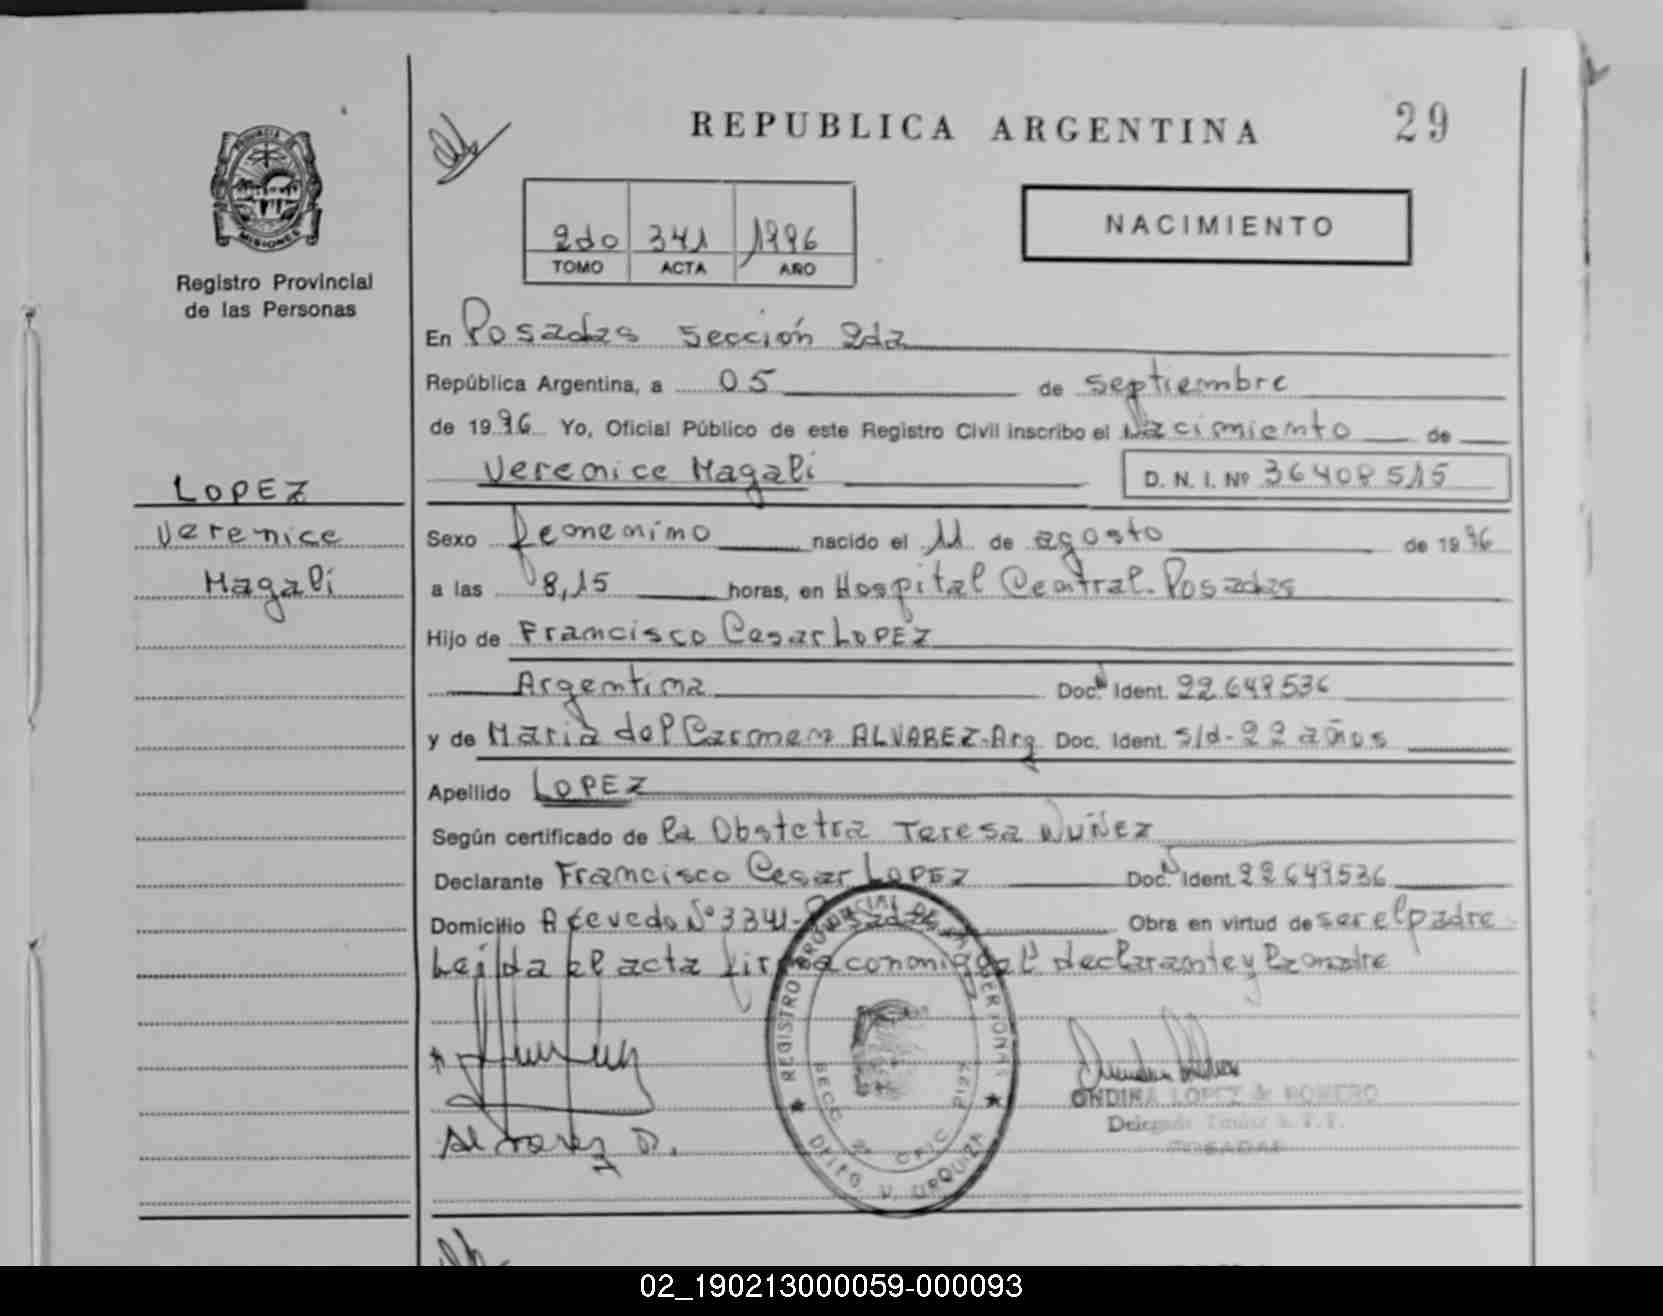 REPUBLICA ARGENTINA
29
PROVINCIA DE
MISIONES
Registro Provincial
de las Personas
2do 341 1996
TOMO ACTA AÑO
NACIMIENTO
En Posadas sección 2da
República Argentina, a 05 de septiembre
de 1996 Yo, Oficial Público de este Registro Civil inscribo el Nacimiento de
Verenice Magalí D. N. I. Nº 36408515
LOPEZ
Verenice
Magalí
Sexo femenino nacido el 11 de agosto de 1996
a las 8,15 horas, en Hospital Central. Posadas
Hijo de Francisco Cesar LOPEZ
Argentina Doc. Ident. 22.649536
y de María del Carmen ALVAREZ-Arg Doc. Ident. s/d-22 años
Apellido LOPEZ
Según certificado de la Obstetra Teresa Nuñez
Declarante Francisco Cesar LOPEZ Doc. Ident. 22649536
Domicilio Acevedo Nº 3341-Posadas Obra en virtud de ser el padre
Leída el acta firma conmigo el declarante y la madre
REGISTRO PROVINCIAL DE LAS PERSONAS
SECC. 2a
DPTO. V. URQUIZA
ONDINA LOPEZ de ROMERO
POSADAS
02_190213000059-000093